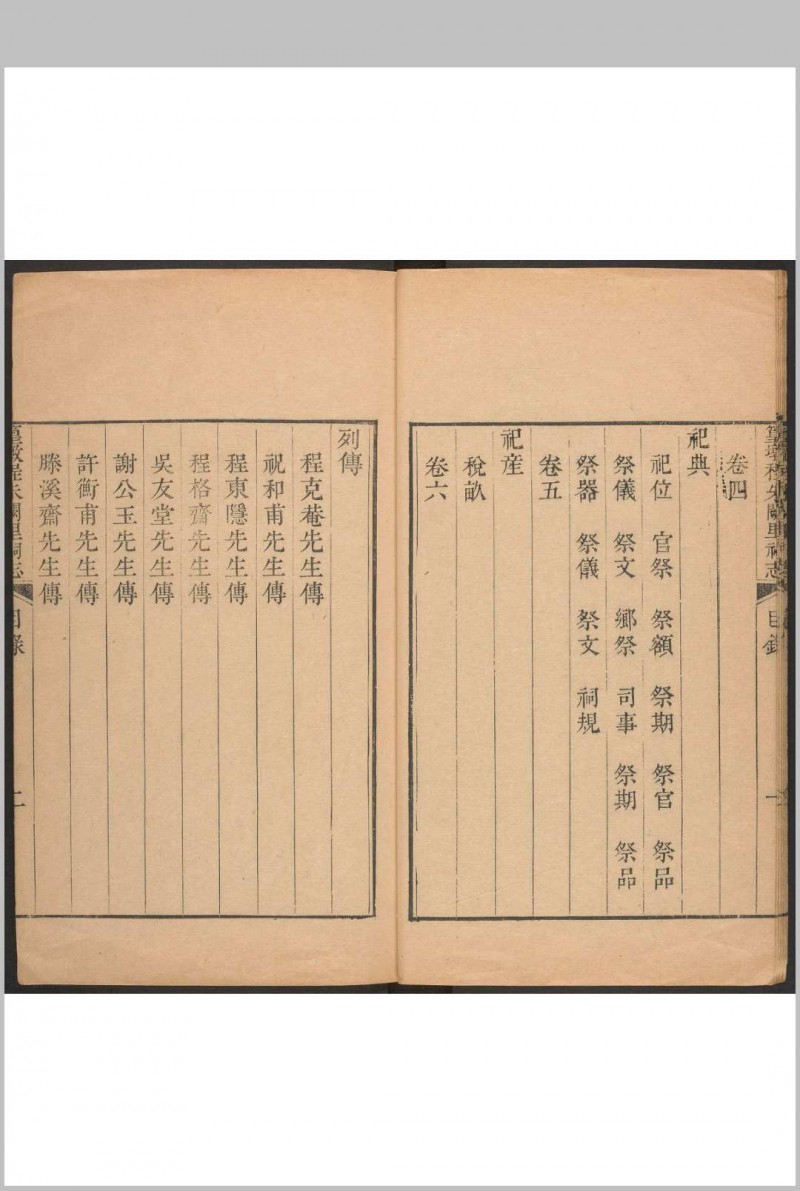 卷四
祀典
祀位 官祭 祭額 祭期 祭官 祭品
祭儀 祭文 鄉祭 司事 祭期 祭品
祭器 祭儀 祭文 祠規
卷五
祀産
稅畝
卷六
列傳
程克菴先生傳
祝和甫先生傳
程東隱先生傳
程格齋先生傳
吳友堂先生傳
謝公玉先生傳
許衡甫先生傳
滕溪齋先生傳
程朱闕里祠志 目錄 二